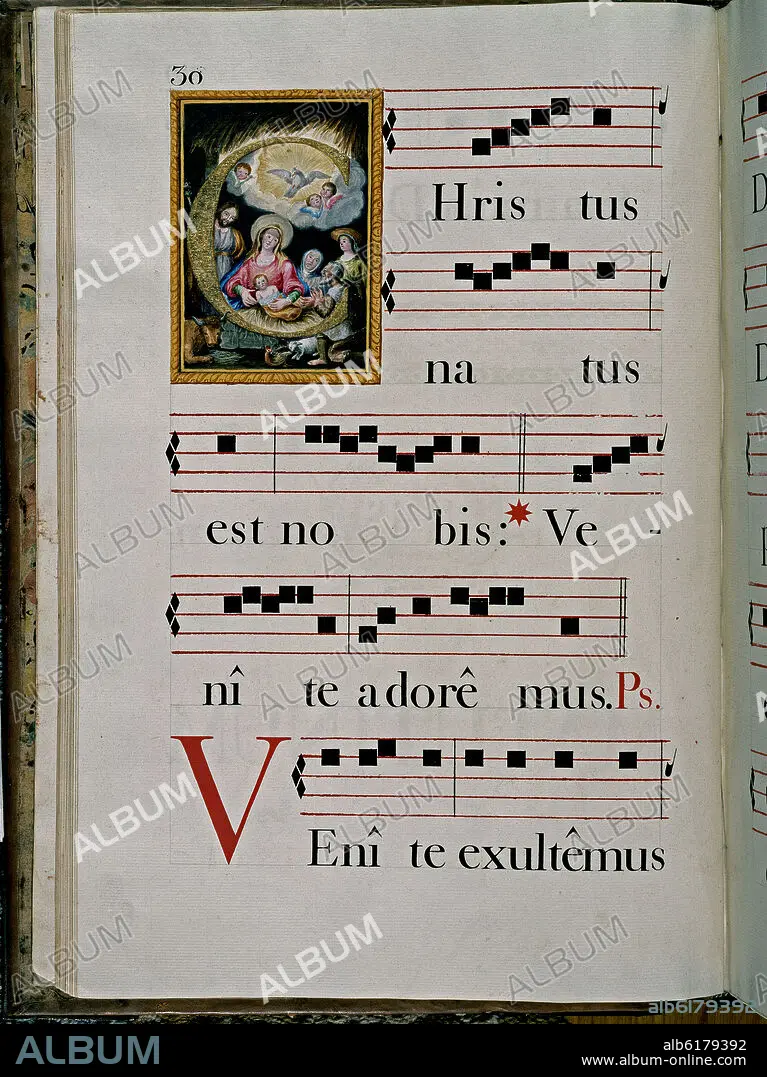 30
CHris tus
na tus
est no bis:* Ve -
nî te adorê mus. Ps.
VEnî te exultêmus
D
D
ALBUM
alb6179392
ALBUM
alb6179392
www.album-online.com